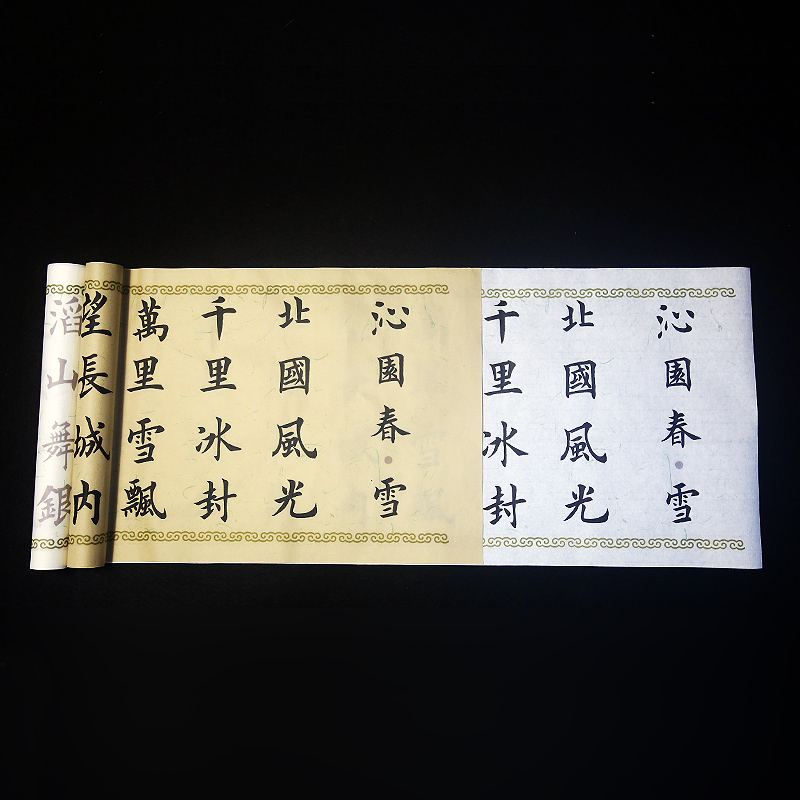 沁園春·雪
北國風光
千里冰封
沁園春·雪
北國風光
千里冰封
萬里雪飄
望長城内
滔山舞銀